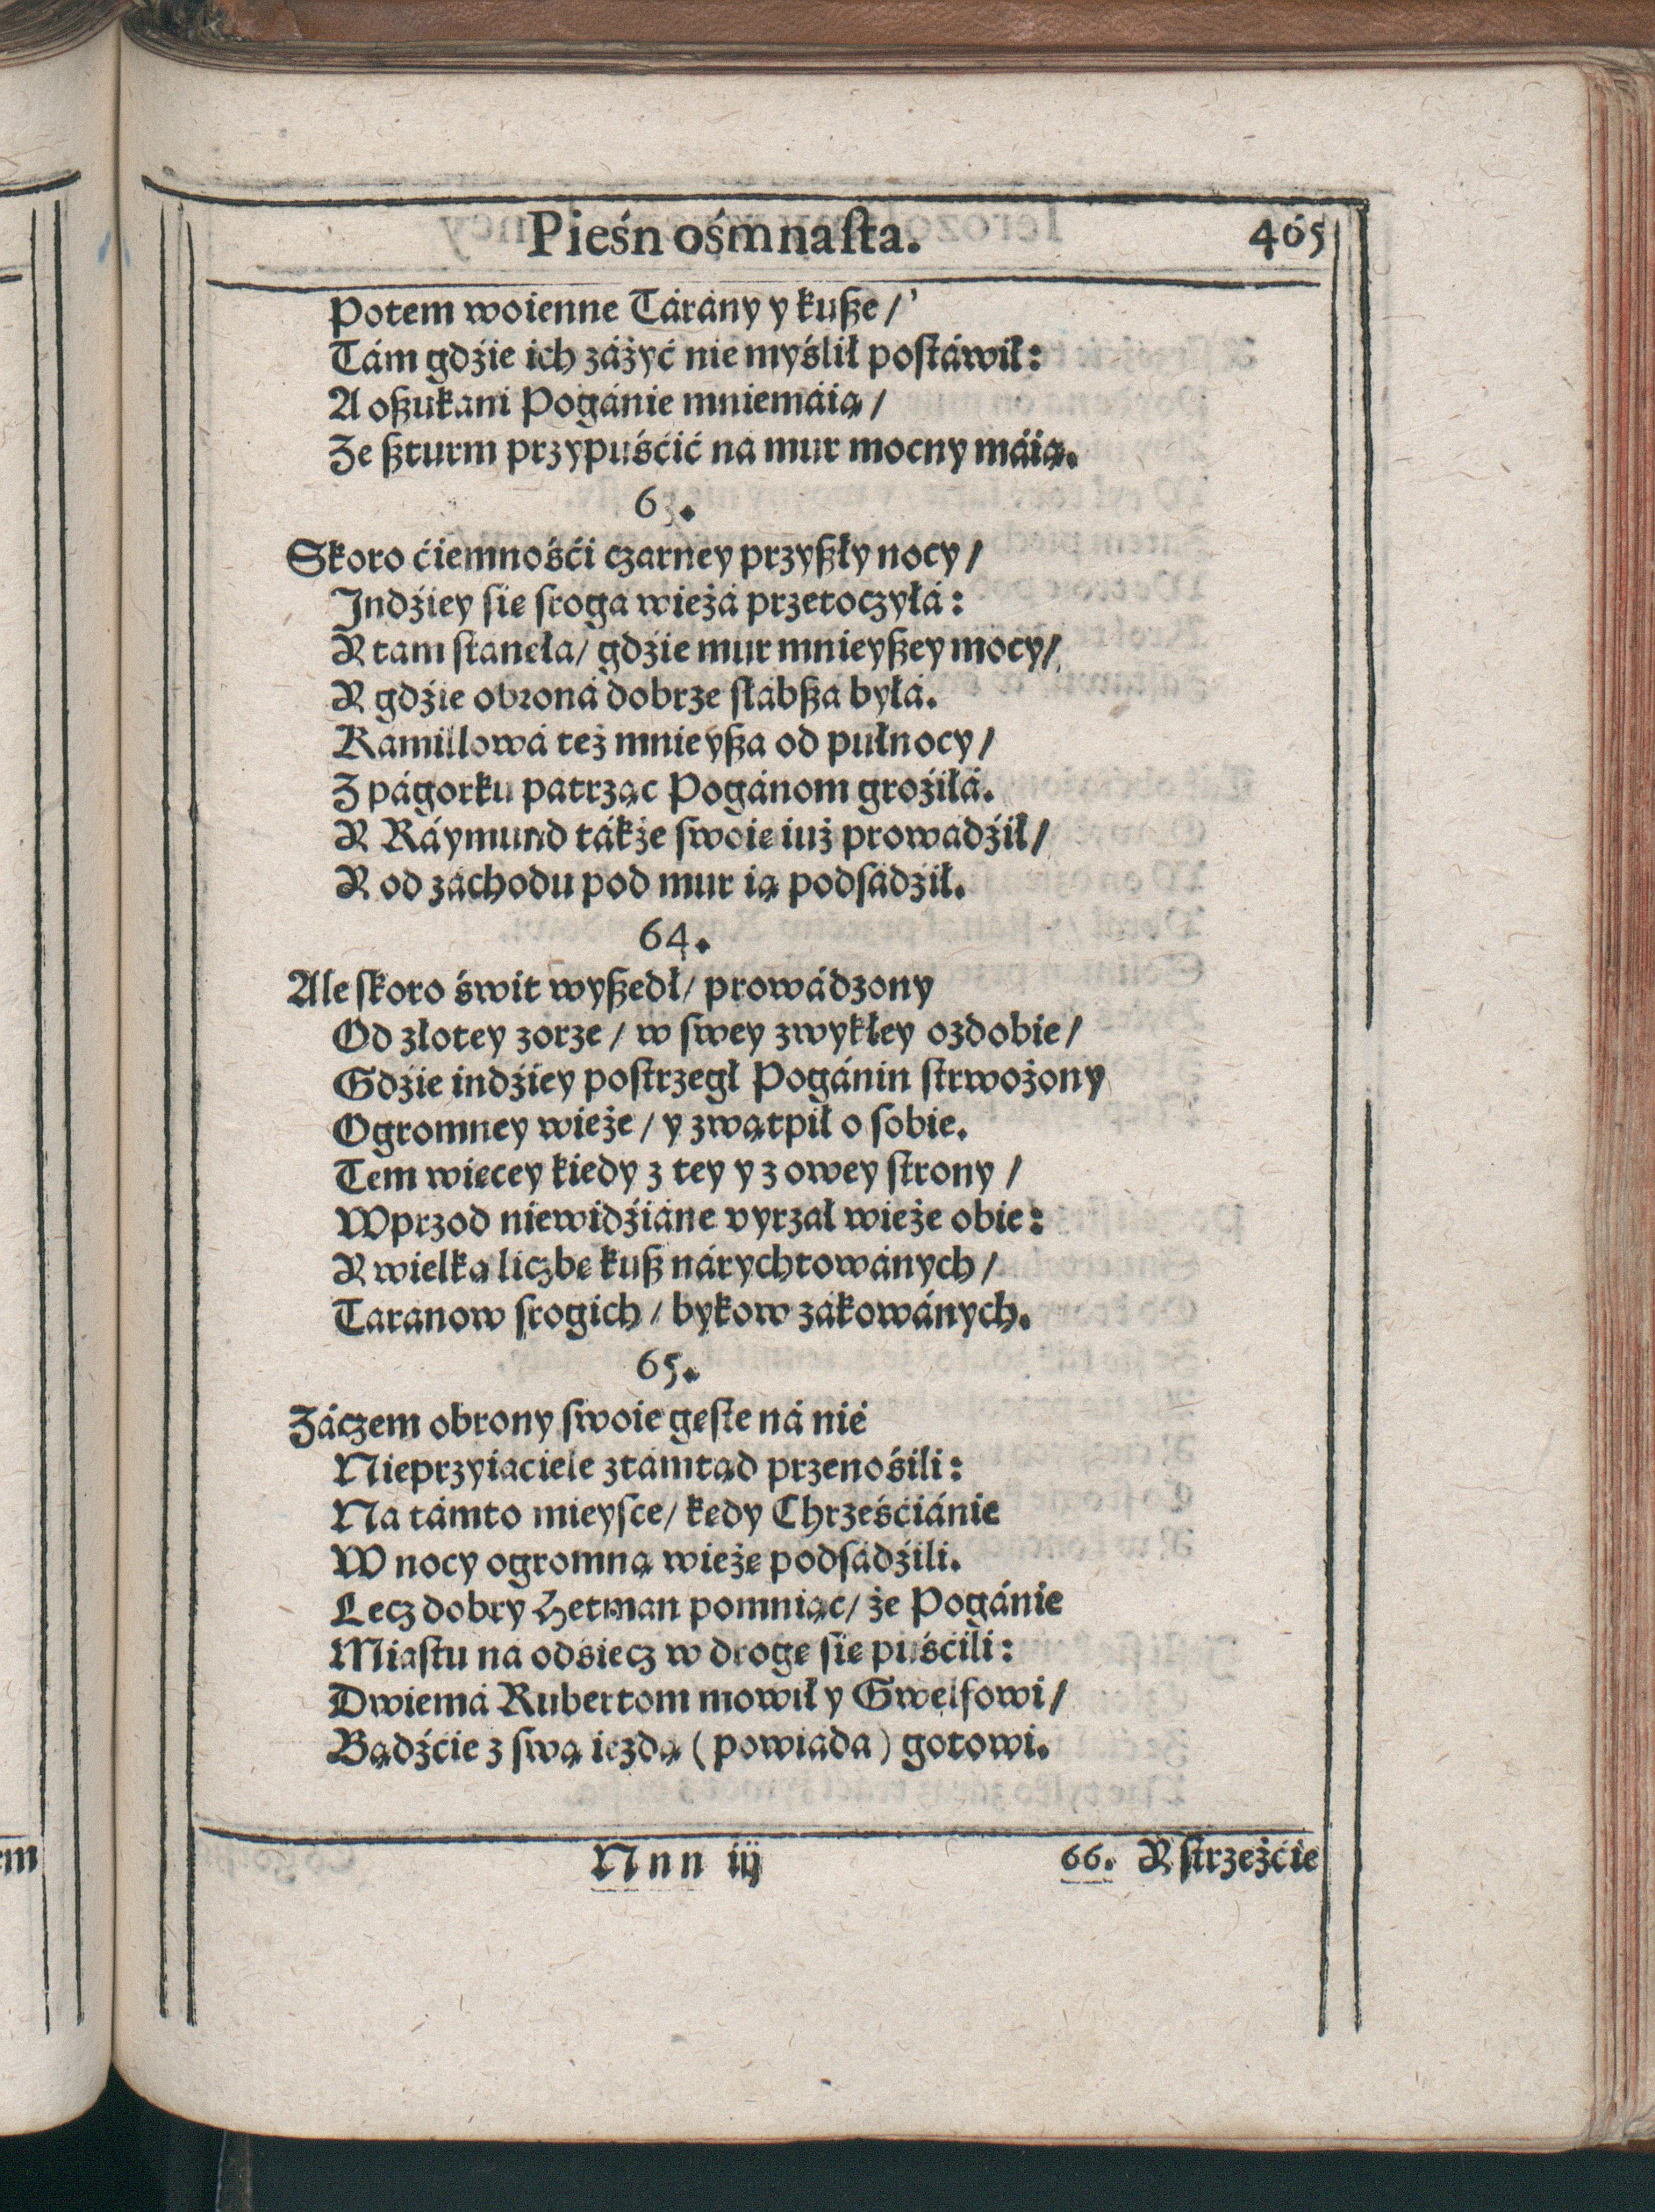 Pieśń ośmnaſta. 465
Potem woienne Tárány y kuße /
Tám gdźie ich záżyć nie myślił poſtáwił:
A oßukani Pogánie mniemáią /
Że ßturm przypuśćić ná mur mocny máią.
63.
Skoro ćiemnośći czarney przyßły nocy /
Indźiey ſię ſroga wieżá przetoczyłá:
Y tam ſtanęła / gdźie mur mnieyßey mocy /
Y gdźie obroná dobrze ſłábßa byłá.
Kamillowá też mnieyßa od pułnocy /
Z págorku patrząc Pogánom groźiłá.
Y Ráymund tákże ſwoię iuż prowadźił /
Y od zachodu pod mur ią podſádźił.
64.
Ale ſkoro świt wyßedł / prowádzony
Od złotey zorze / w ſwey zwykłey ozdobie /
Gdźie indźiey poſtrzegł Pogánin ſtrwożony
Ogromney wieże / y zwątpił o ſobie.
Tem więcey kiedy z tey y z owey ſtrony /
Wprzod niewidźiáne vyrzał wieże obie:
Y wielką liczbę kuß nárychtowánych /
Taranow ſrogich / bykow zákowánych.
65.
Záczem obrony ſwoie gęſte ná nię
Nieprzyiaciele ztámtąd przenośili:
Na támto mieyſce / kędy Chrześćiánie
W nocy ogromną wieżę podſádźili.
Lecz dobry Hetman pomniąc / że Pogánie
Miaſtu ná odśiecz w drogę ſię puśćili:
Dwiemá Rubertom mowił y Gwelfowi /
Bądźćie z ſwą iezdą (powiáda) gotowi.
Nnn iij 66. Y ſtrzeżćie
em